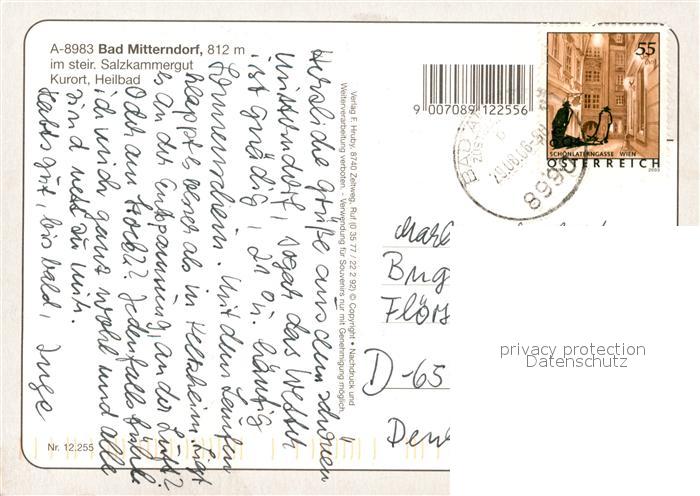 A-8983 Bad Mitterndorf, 812 m
im steir. Salzkammergut
Kurort, Heilbad
Herzliche Grüße aus dem schönen
Mitterndorf, sogar das Wetter
ist gnädig, 21° u. häufig
Sonnenschein. Mit dem Laufen
klappts besser als in Kelkheim, liegt
es an der Entspannung, an der Luft?
Oder am Stock? Jedenfalls fühle
ich mich ganz wohl und alle
sind nett zu mir.
Habts gut, bis bald,
Inge
Verlag F. Hruby, 8740 Zeltweg, Ruf (0 35 77 / 22 2 92) © Copyright • Nachdruck und
Weiterverarbeitung verboten. - Verwendung für Souvenirs nur mit Genehmigung möglich.
Nr. 12.255
9 007089 122556
55
SCHÖNLATERNGASSE WIEN
ÖSTERREICH
2003
BAD
8990
Flörs
D-65
privacy protection
Datenschutz